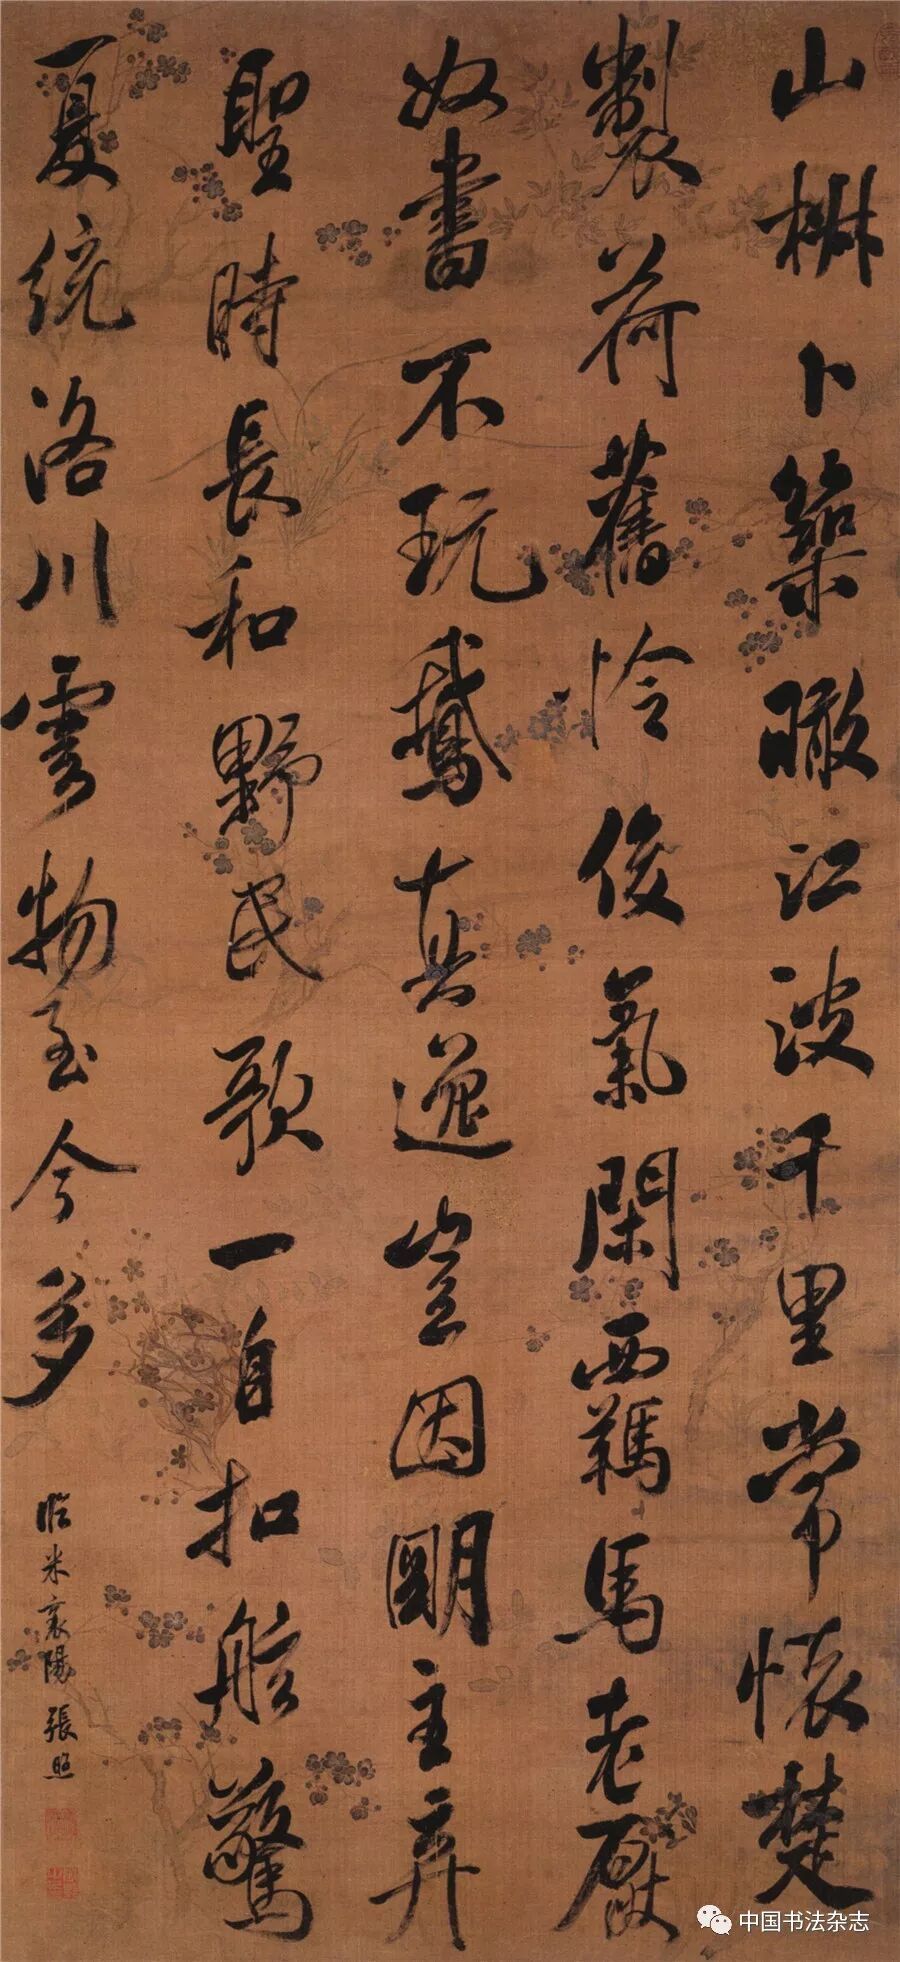 山椒卜築瞰江波千里常懷楚
製荷舊怜俊氣閑覊馬老厭
奴書不玩鵝真逸豈因明主弃
聖時長和野民歌一自扣舷驚
夏統洛川雲物至今多
臨米襄陽 張照
中国书法杂志